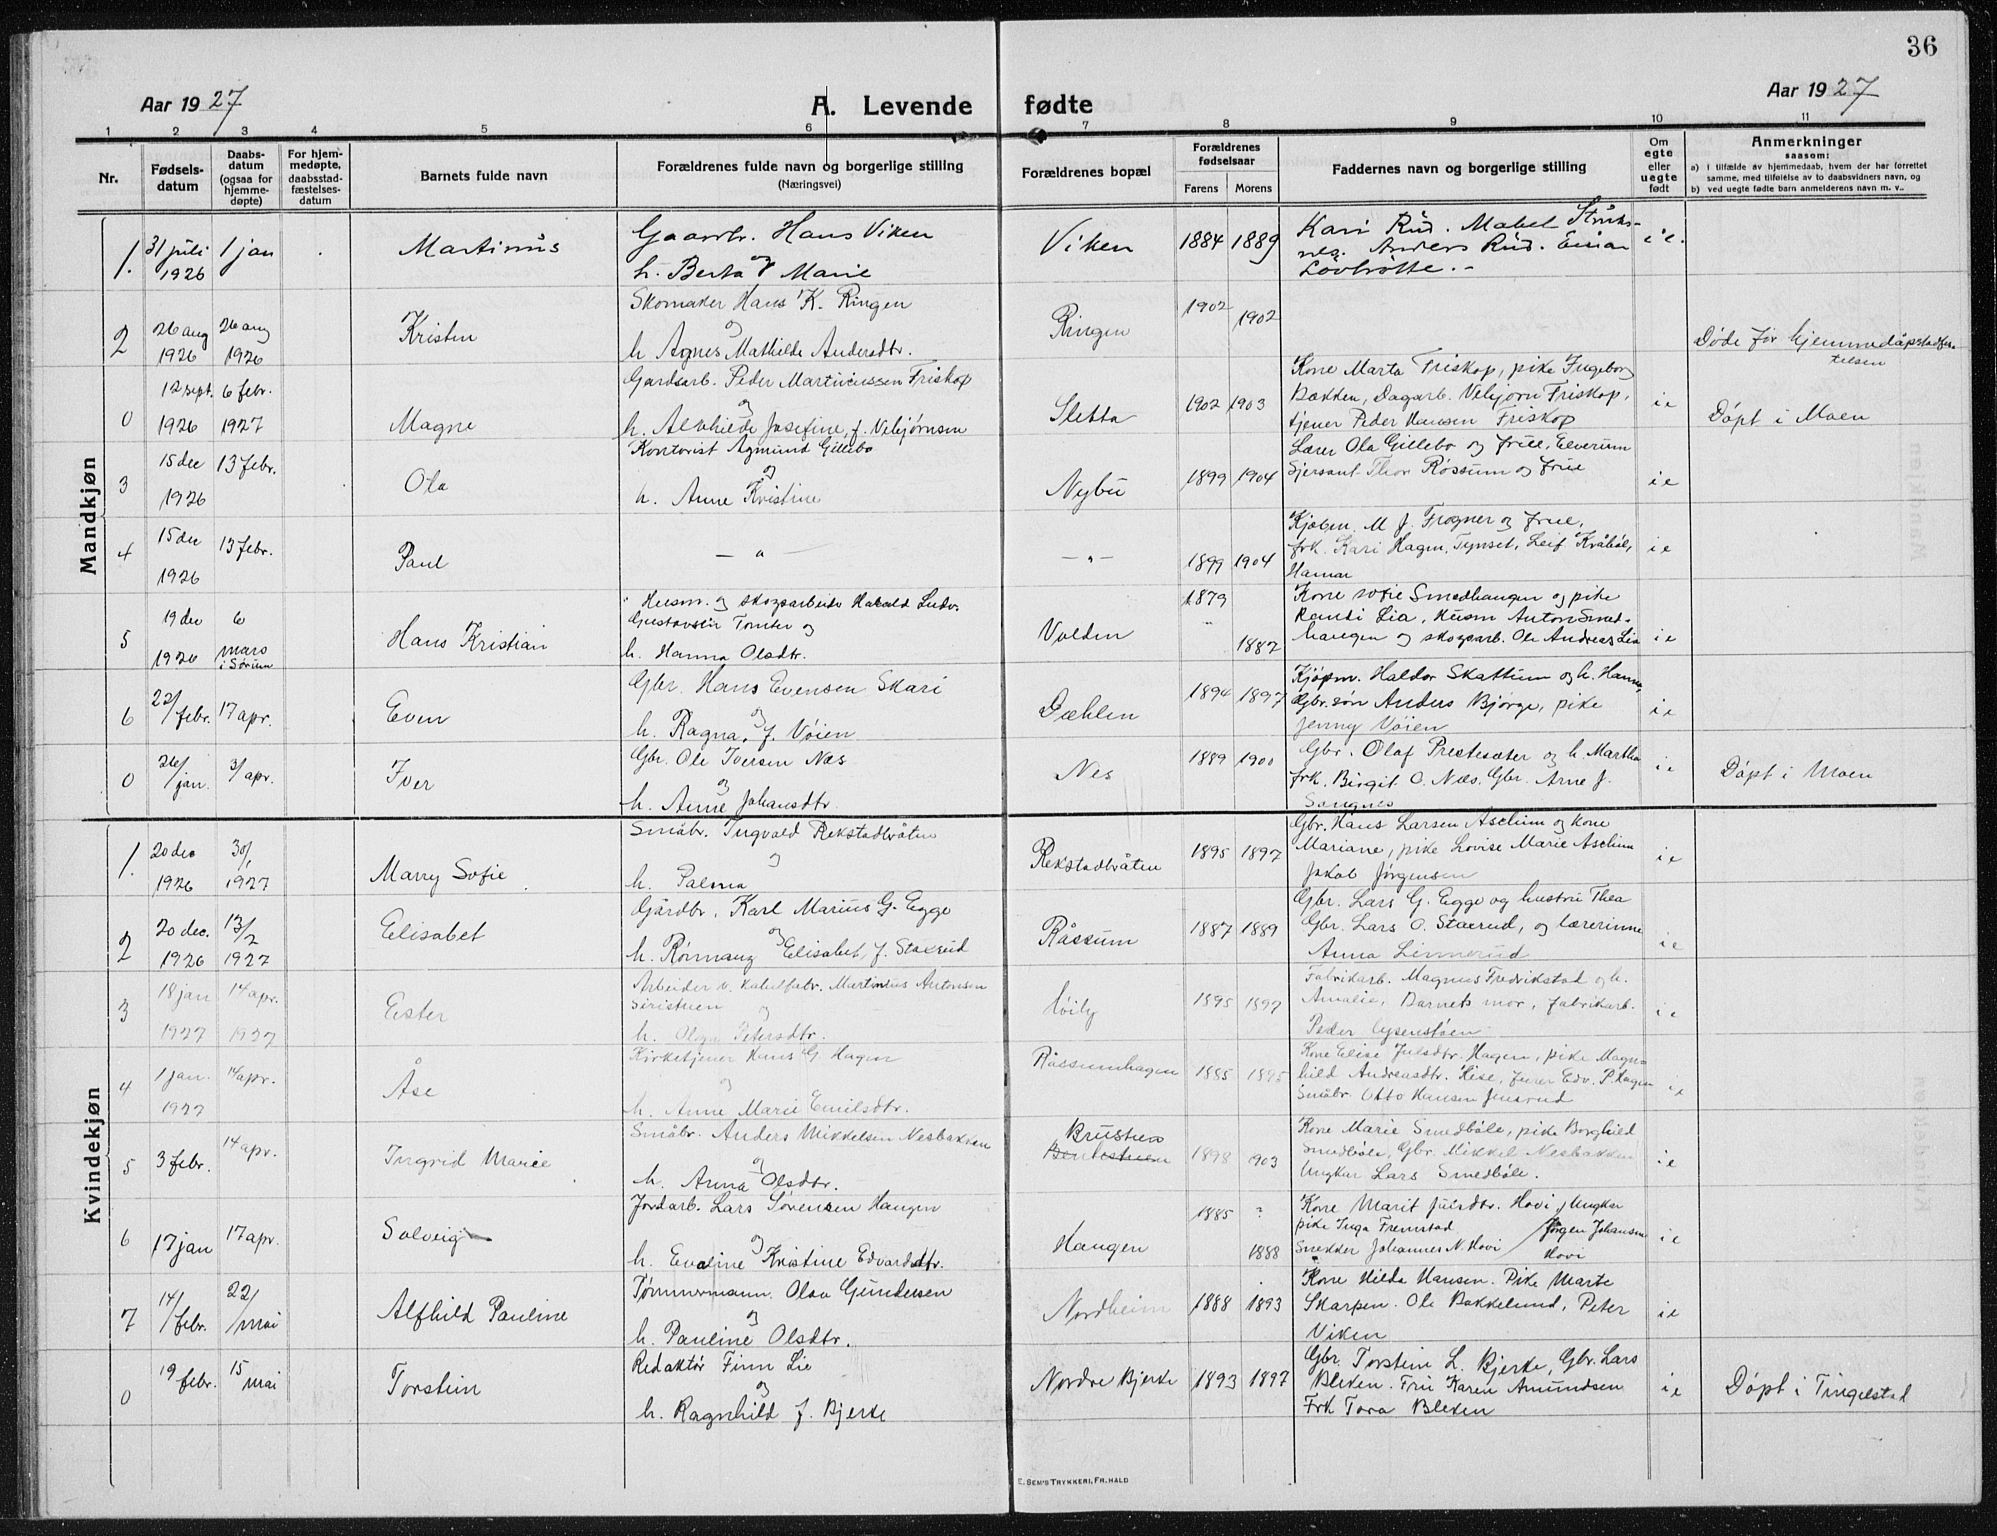 36
Aar 1927
A. Levende fødte
Aar 1927
1 2 3 4 5 6 7 8 9 10 11
Nr.
Fødsels-
datum
Daabs-
datum
(ogsaa for
hjemme-
døpte)
For hjem-
medøpte,
daabsstad-
fæstelses-
datum
Barnets fulde navn
Forældrenes fulde navn og borgerlige stilling
(Næringsvei)
Forældrenes bopæl
Forældrenes
fødselsaar
Farens Morens
Faddernes navn og borgerlige stilling
Om
egte
eller
uegte
født
Anmerkninger
saasom:
a) i tilfælde av hjemmedaab, hvem der har forrettet
samme, med tilføielse av to daabsvidners navn, og
b) ved uegte fødte barn anmelderens navn m. v..
Mandkjøn
1. 31 juli 1926 1 jan Martinus
Gaardbr. Hans Viken
og
h. Berta Marie
Viken 1884 1889
Kari Rud. Mabel
Anders Rud. Einar
i e.
2 26 aug 1926 26 aug 1926 Kristen
Skomaker Hans K. Ringen
og
h. Agnes Mathilde Andersdtr.
Ringen 1902 1902
Døde før hjemmedåpstadfes-
telsen
0 12 sept. 1926 6 febr. 1927 Magne
Gardsarb. Peder Martinussen Friskop
og
h. Alvhilde Josefine, f. Vebjørnsen
Sletta 1902 1903
Kone Marta Friskop, pike Ingeborg
Bækken, Dagarb. Vebjørn Friskop,
tjener Peder Hansen Friskop
i e
Døpt i Moen
3 15 dec 1926 13 febr. Ola
Kontorist Agmund Gillebo
og
h. Anne Kristine
Nybu 1899 1904
Lærer Ola Gillebo og frue, Elverum
Sjersant Thor Røssum og frue
i e
4 15 dec 1926 13 febr. Paul
— " —
— " —
1899 1904
Kjøbm. M J. Frogner og frue,
frk. Kari Hagen, Tynset, Leif Kråbøl,
Hamar
i e
5 19 dec 1926 6 mars i Sørum Hans Kristian
Husm. og skogsarbeider Harald Ludv.
Gustavsen Tomter og
h. Hanna Olsdtr.
Volden 1879 1882
Kone Sofie Smedhaugen og pike
Randi Lia, Husm Anton Smed-
haugen og skogsarb. Ole Andreas Lia
i e
6 22/febr. 17 apr. Even
Gbr. Hans Evensen Skari
og
h. Ragna, f. Vøien
Dæhlen 1894 1897
Kjøpm. Haldor Skattum og h. Hanna,
Gbr.søn Anders Bjørge, pike
Jenny Vøien
i e
0 26/jan. 3/apr. Iver
Gbr. Ole Iversen Næs
og
h. Anne Johansdtr.
Nes 1889 1900
Gbr. Olaf Prestesæter og h. Martha
frk. Birgit O. Næs. Gbr. Arne J.
Sangnes
i e
Døpt i Moen
Kvindekjøn
1. 20 dec 1926 30/1 1927 Marry Sofie
Småbr. Ingvald Rekstadbråten
og
h. Palma
Rekstadbråten 1895 1897
Gbr. Hans Larsen Aschim og kone
Mariane, pike Lovise Marie Aschim
Jakob Jørgensen
i e
2 20 dec. 1926 13/2 1927 Elisabet
Gårdbr. Karl Marius G. Egge
og
h. Rønnaug Elisabet, f. Staxrud
Råssum 1887 1889
Gbr. Lars G. Egge og hustru Thea
Gbr. Lars O. Staxrud, og lærerinne
Anna Linnerud
i e
3 18 jan 1927 14 apr. 1927 Ester
Arbeider v. kabelfabr. Martinius Antonsen
og
h. Olga Petersdtr.
Høily 1895 1897
Fabrikarb. Magnus Fredrikstad og h.
Amalie, Barnets mor, fabrikarb.
Peder
i e
4 1 jan. 1927 14 apr. Åse
Kirketjener Hans G. Hagen
og
h. Anne Marie Emilsdtr.
Råssumhagen 1885 1895
Kone Elise Julsdtr. Hagen, pike Magn-
hild Andreasdtr. Hise, furer Edv. P. Hagen
Småbr. Otto Hansen Jensrud
i e
5 3 febr. 14 apr. Ingrid Marie
Småbr. Anders Mikkelsen Nesbakken
og
h. Anna Olsdtr.
Brustuen
1898 1903
Kone Marie Smedbøle, pike Borghild
Smedbøle, Gbr. Mikkel Nesbakken
Ungkar Lars Smedbøle.
i e
6 17 jan 17 apr. Solveig
Jordarb. Lars Sørensen Haugen
og
h. Eveline Kristine Edvardsdtr.
Haugen 1885 ? 1888
Kone Marit Julsdtr. Hovi, Ungkar
pike Inga Fremstad Jørgen Johansen
Snekker Johannes N. Hovi Hovi
i e
7 14/febr. 22/mai Alfhild Pauline
Tømmermann. Olav Gundersen
og
h. Pauline Olsdtr.
Nordheim 1888 1893
Kone Hilda Hansen. Pike Marte
Skarpen. Ole Bakkelund, Peter
Viken
i e
0 19 febr. 15 mai Torstein
Redaktør Finn Lie
og
h. Ragnhild f. Bjerke
Nordre Bjerke 1893 1897
Gbr. Torstein L. Bjerke, Gbr. Lars
Bleken. Fru Karen Amundsen
Frk Tora Bleken
i e
Døpt i Tingelstad
E. SEM'S TRYKKERI, FR.HALD